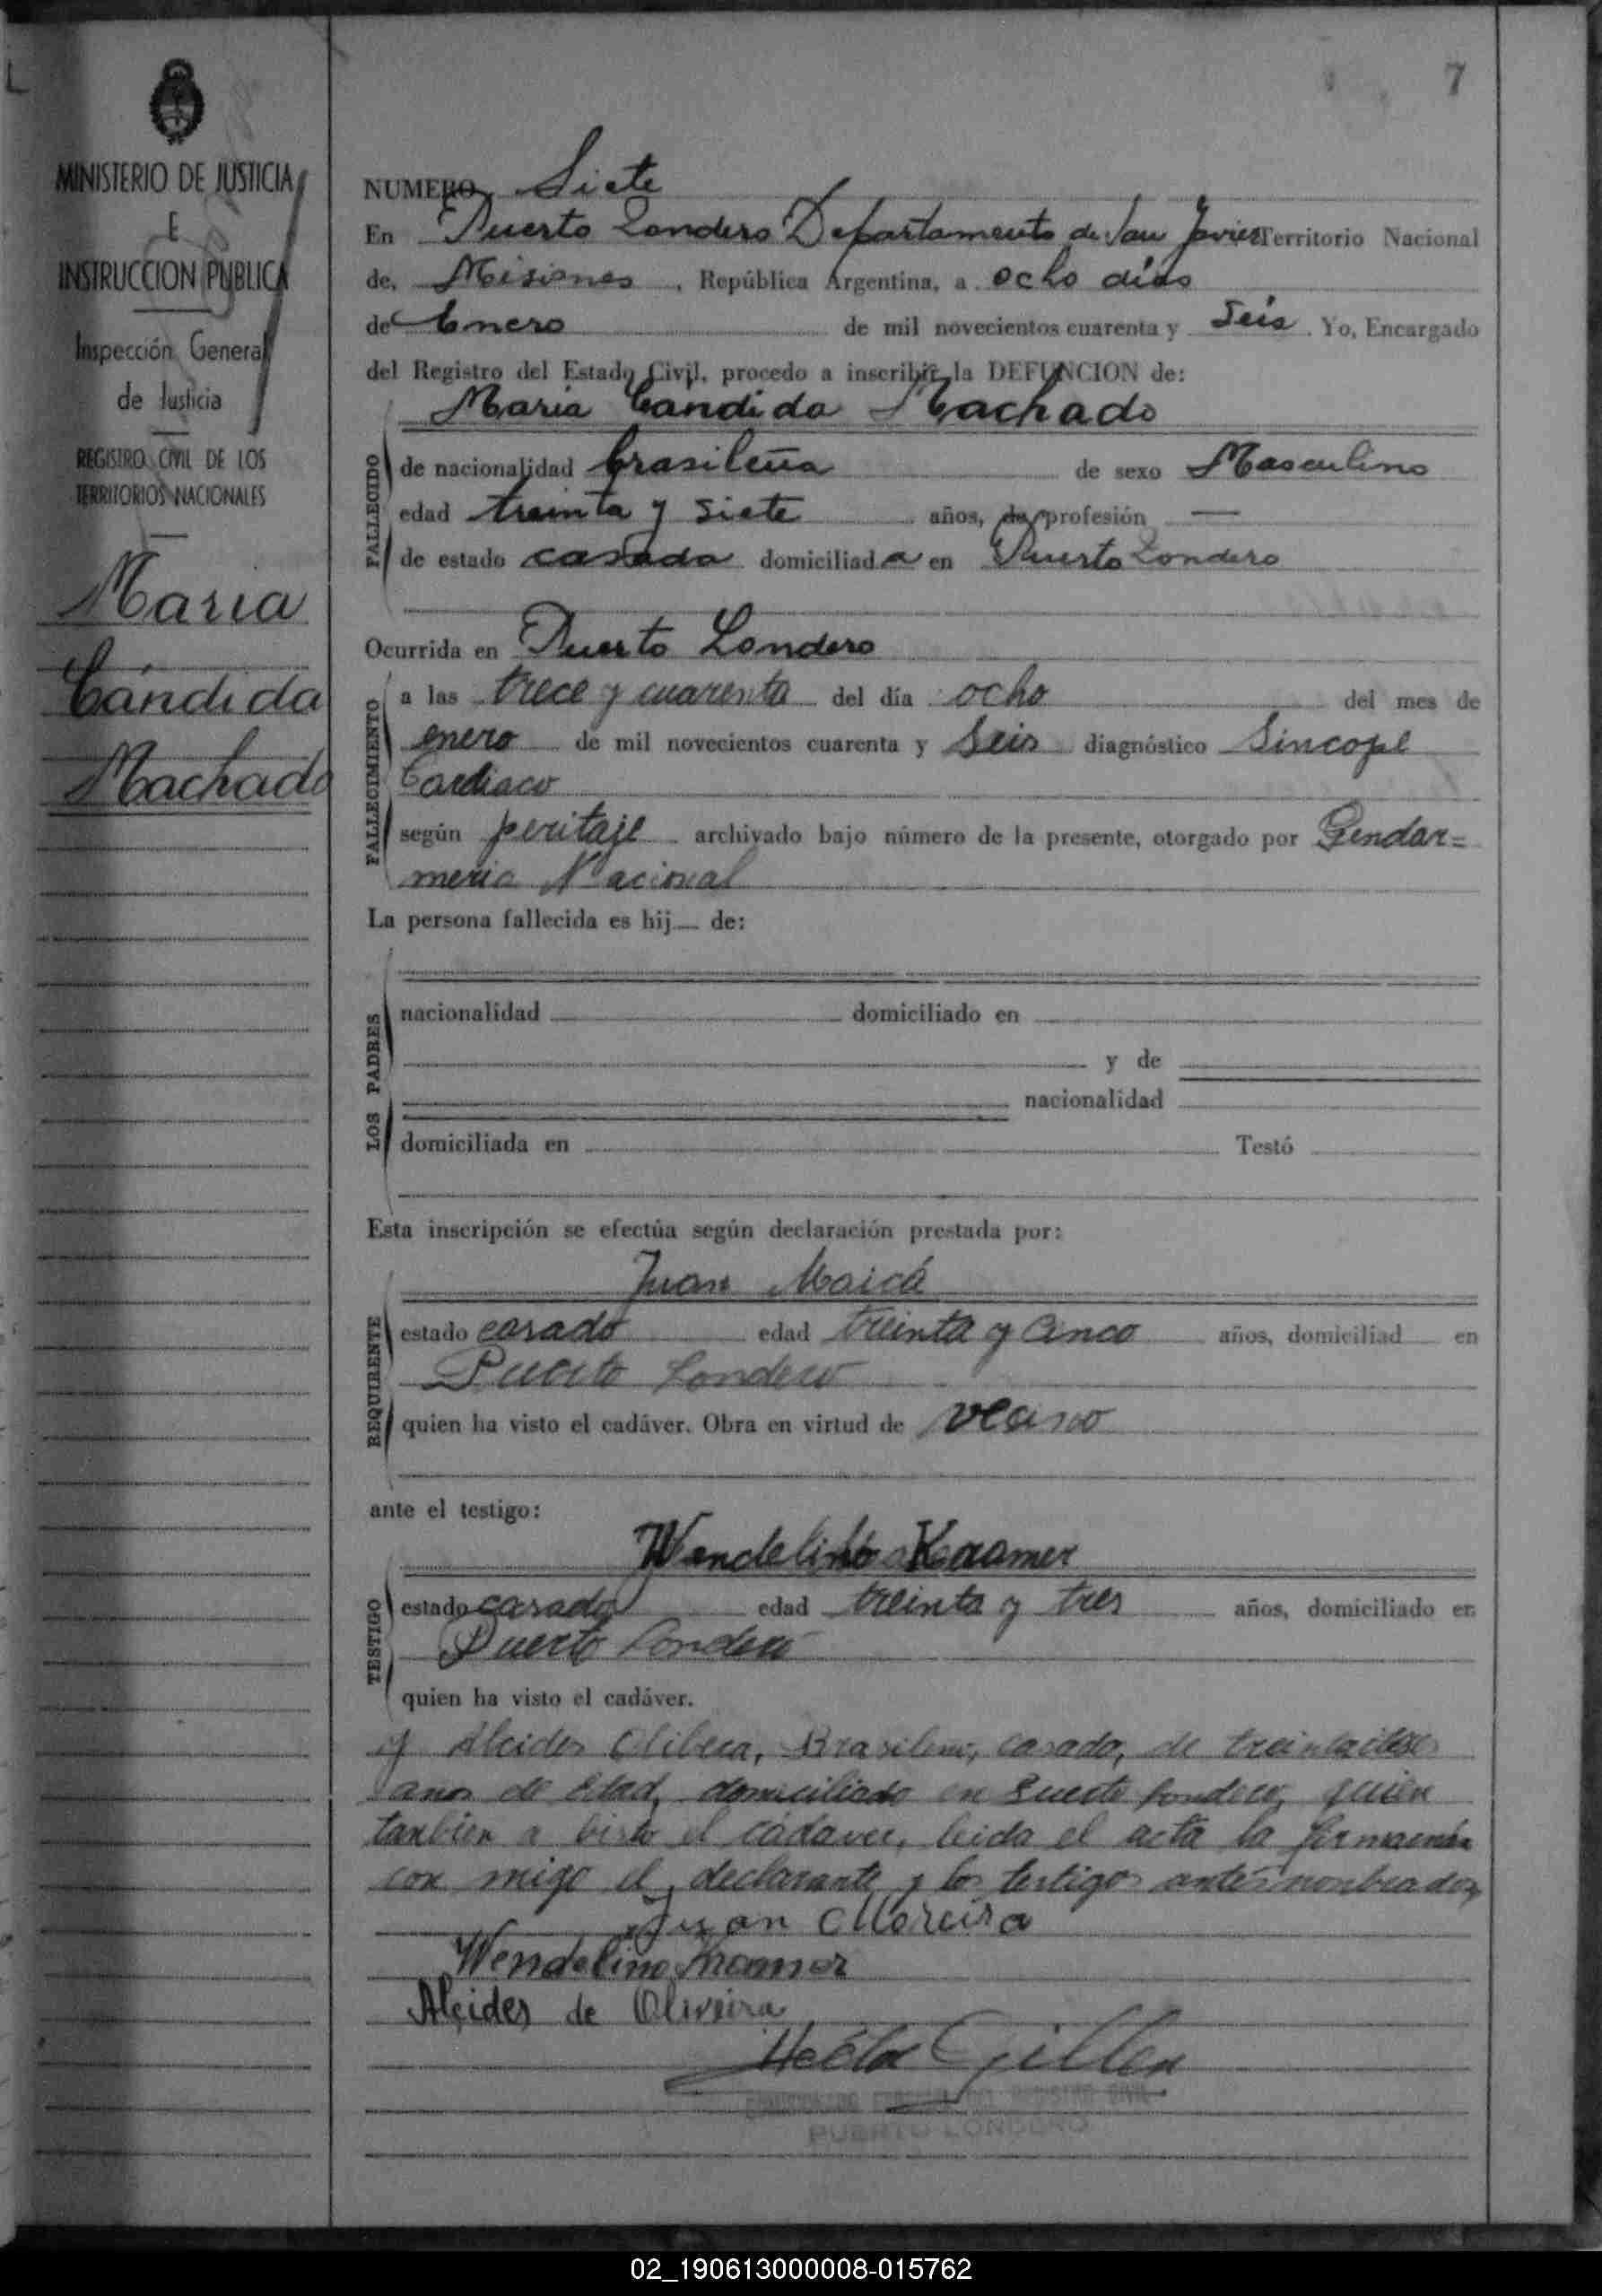 7
MINISTERIO DE JUSTICIA
E
INSTRUCCION PUBLICA
Inspección General
de Justicia
REGISTRO CIVIL DE LOS
TERRITORIOS NACIONALES
Maria
Cándida
Machado
NUMERO Siete
En Puerto Londero Departamento de San Javier Territorio Nacional
de, Misiones, República Argentina, a ocho dias
de Enero de mil novecientos cuarenta y Seis. Yo, Encargado
del Registro del Estado Civil, procedo a inscribir la DEFUNCION de:
Maria Candida Machado
FALLECIDO
de nacionalidad brasileña de sexo Masculino
edad treinta y siete años, de profesión —
de estado casada domiciliada en Puerto Londero
Ocurrida en Puerto Londero
FALLECIMIENTO
a las trece y cuarenta del día ocho del mes de
enero de mil novecientos cuarenta y Seis diagnóstico Sincope
Cardiaco
según peritaje archivado bajo número de la presente, otorgado por Gendar=
meria Nacional
La persona fallecida es hij— de:
LOS PADRES
nacionalidad domiciliado en
y de
nacionalidad
domiciliada en Testó
Esta inscripción se efectúa según declaración prestada por:
Juan Maicá
REQUIRENTE
estado casado edad treinta y cinco años, domiciliad en
Puerto Londero
quien ha visto el cadáver. Obra en virtud de vecino
ante el testigo:
Wendelino Kramer
TESTIGO
estado casado edad treinta y tres años, domiciliado en
Puerto Londero
quien ha visto el cadáver.
y Alcides Olibera, Brasileno, casado, de
anos de edad, domiciliado en Puerto Londero, quien
tanbien a bisto el cádaver, leida el acta la
con migo el declarante y los testigos antes nonbrados,
Juan Moreira
Wendelino Kramer
Alcides de Oliveira
Hector Gillen
PUERTO LONDERO
02_190613000008-015762